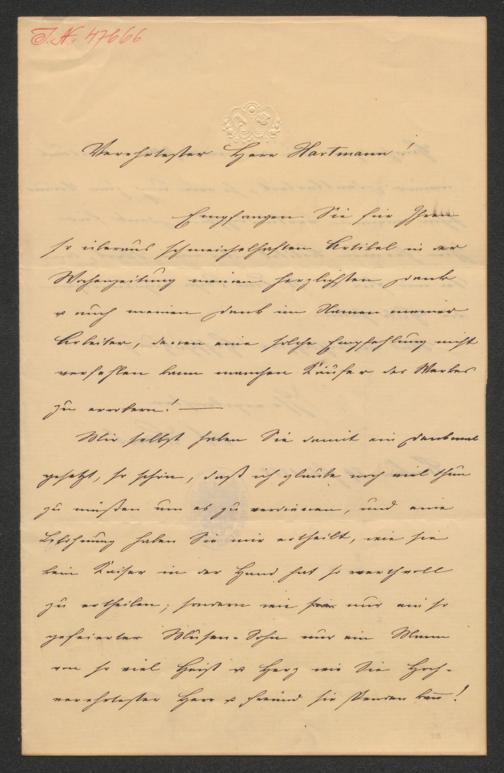 I.N. 47666
Verehrtester Herr Hartmann!
Empfangen Sie für Ihren
so überaus schmeichelhaften Artikel in der
Wochenzeitung meinen herzlichsten Dank
u auch meinen Dank im Namen meiner
Arbeiter, denen eine solche Empfehlung nicht
verfehlen kann manchen Käufer des Werkes
zu erobern! —
Mir selbst haben Sie damit ein Denkmal
gesetzt, so schön, daß ich glaube noch viel thun
zu müßen um es zu verdienen, und eine
Belohnung haben Sie mir ertheilt, wie sie
kein Kaiser in der Hand hat so werthvoll
zu ertheilen; sondern wie nur ein so
gefeierter Musen-Sohn nur ein Mann
von so viel Geist u Herz wie Sie Hoch-
verehrtester Herr u Freund sie spenden kann!